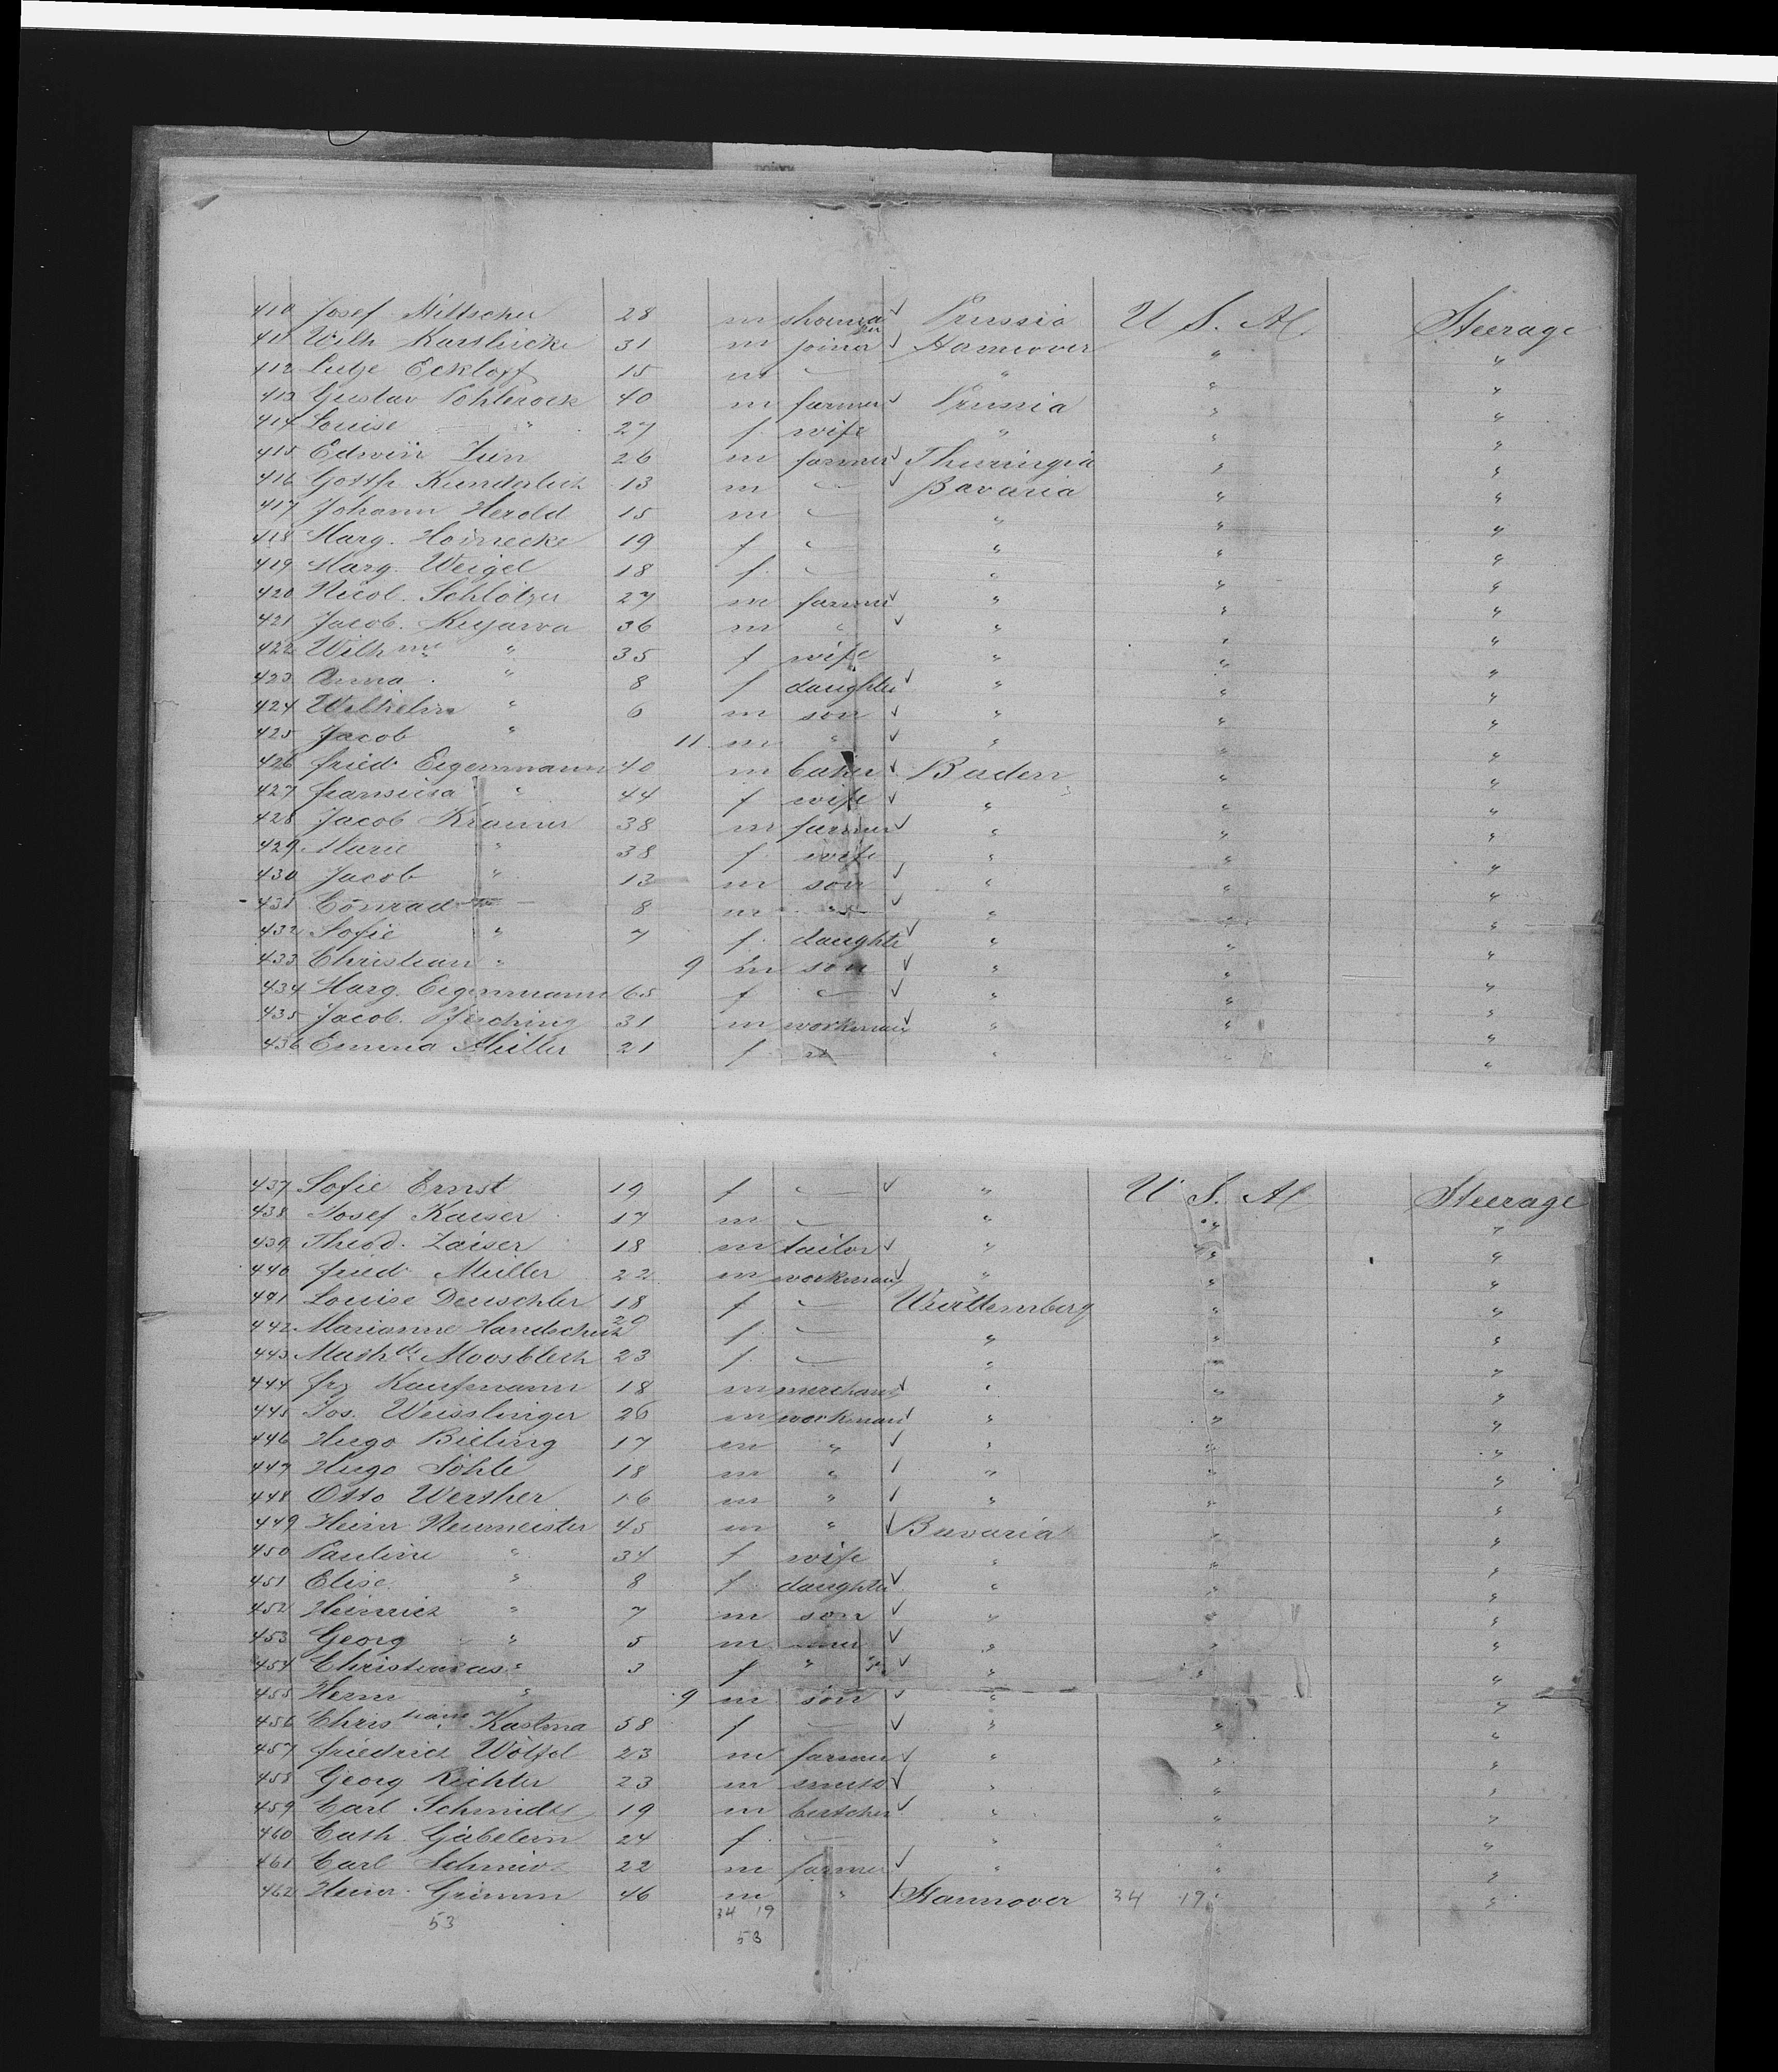 410 Josef Niltscher 28 m shoemaker ✓ Prussia U. S. A. Steerage
411 Wilh Karstricke 31 m joiner ✓ Hannover " "
412 Lutge Eckloff 15 m — " " "
413 Gustav Pohlerock 40 m farmer ✓ Prussia " "
414 Louise " 27 f wife " " "
415 Edwin Zien 26 m farmer ✓ Thuringia " "
416 Gottfr. Kunderlich 13 m — ✓ Bavaria " "
417 Johann Herold 15 m — " " "
418 Marg. Hoinecke 19 f — " " "
419 Marg. Weigel 18 f. — " " "
420 Nicol. Schlötzer 27 m farmer ✓ " " "
421 Jacob. Kujawa 36 m " ✓ " " "
422 Wilhme " 35 f wife " " "
423 Anna " 8 f daughter ✓ " " "
424 Wilhelm " 6 m son ✓ " " "
425 Jacob " 11 m " ✓ " " "
426 fried. Eigenmann 40 m baker ✓ Baden " "
427 fransisca " 44 f wife ✓ " " "
428 Jacob Kramer 38 m farmer ✓ " " "
429 Marie " 38 f. wife " " "
430 Jacob " 13 m son ✓ " " "
431 Conrad " 8 m " ✓ " " "
432 Sofie " 7 f. daughte ✓ " " "
433 Christian " 9 m son ✓ " " "
434 Marg. Eigenmann 65 f — ✓ " " "
435 Jacob. Pfisching 31 m workman ✓ " " "
436 Emma Müller 21 f. — " " "
437 Sofie Ernst 19 f — ✓ " U. S. A. Steerage
438 Josef Kaiser 17 m — " " "
439 Theod. Zaiser 18 m tailor ✓ " " "
440 fried. Müller 22 m workman ✓ " " "
441 Louise Deuschler 18 f — Württemberg " "
442 Marianne Handschuh 20 f. — " " "
443 Mathde Moosblech 23 f. — " " "
444 frz Kaufmann 18 m merchant ✓ " " "
445 Jos. Weisslinger 26 m workman ✓ " " "
446 Hugo Bieling 17 m " ✓ " " "
447 Hugo Söhle 18 m " ✓ " " "
448 Otto Werther 16 m " ✓ " " "
449 Heinr Neumeister 45 m " ✓ Bavaria " "
450 Pauline " 34 f wife " " "
451 Elise " 8 f daughter ✓ " " "
452 Heinrich " 7 m son ✓ " " "
453 Georg " 5 m ✓ " " "
454 " 3 f " ✓ " " "
455 Herm " 9 m son ✓ " " "
456 Christiane Kastma 58 f — ✓ " " "
457 friedrich Wölfel 23 m farmer ✓ " " "
458 Georg Richter 23 m ✓ " " "
459 Carl Schmidt 19 m butcher ✓ " " "
460 Cath. Gäbelein 24 f. — " " "
461 Carl Schmidt 22 m farmer ✓ " " "
462 Heinr. Grimm 46 m " ✓ Hannover 34 19 " "
53 34 19
53